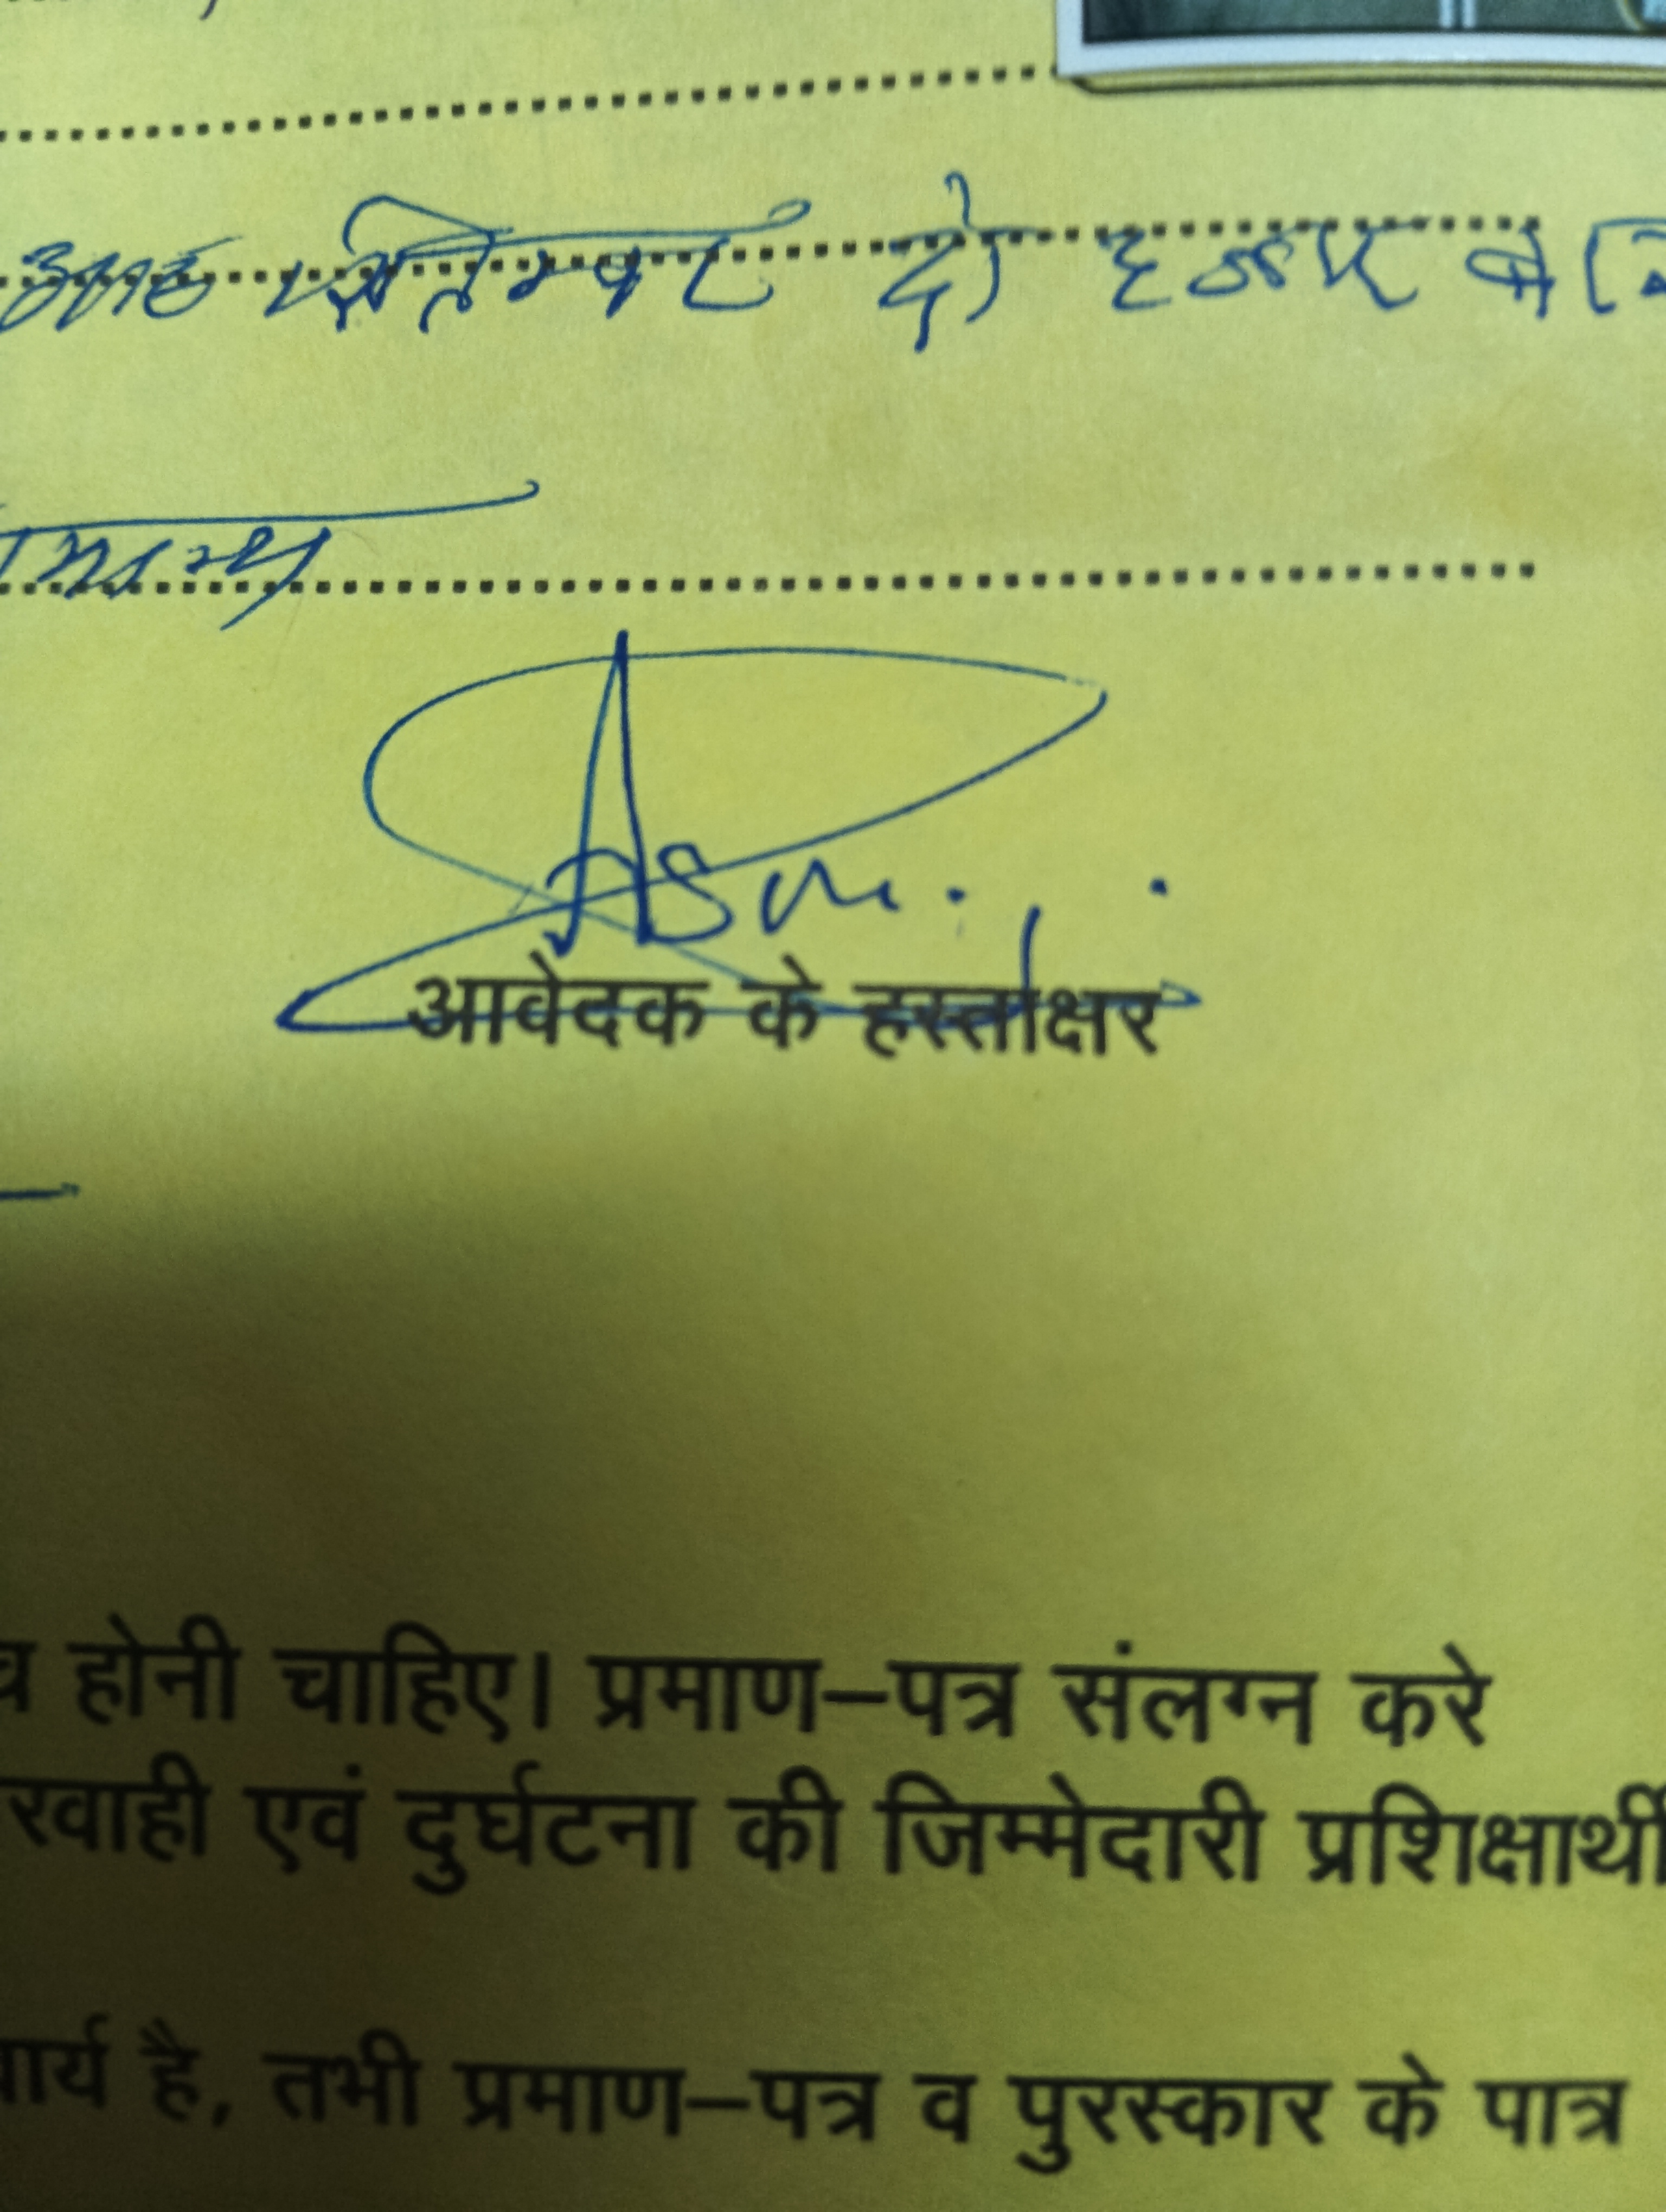 सितम्बर दो हजार
आवेदक के हस्ताक्षर
होनी चाहिए। प्रमाण–पत्र संलग्न करे
रवाही एवं दुर्घटना की जिम्मेदारी प्रशिक्षार्थी
है, तभी प्रमाण–पत्र व पुरस्कार के पात्र